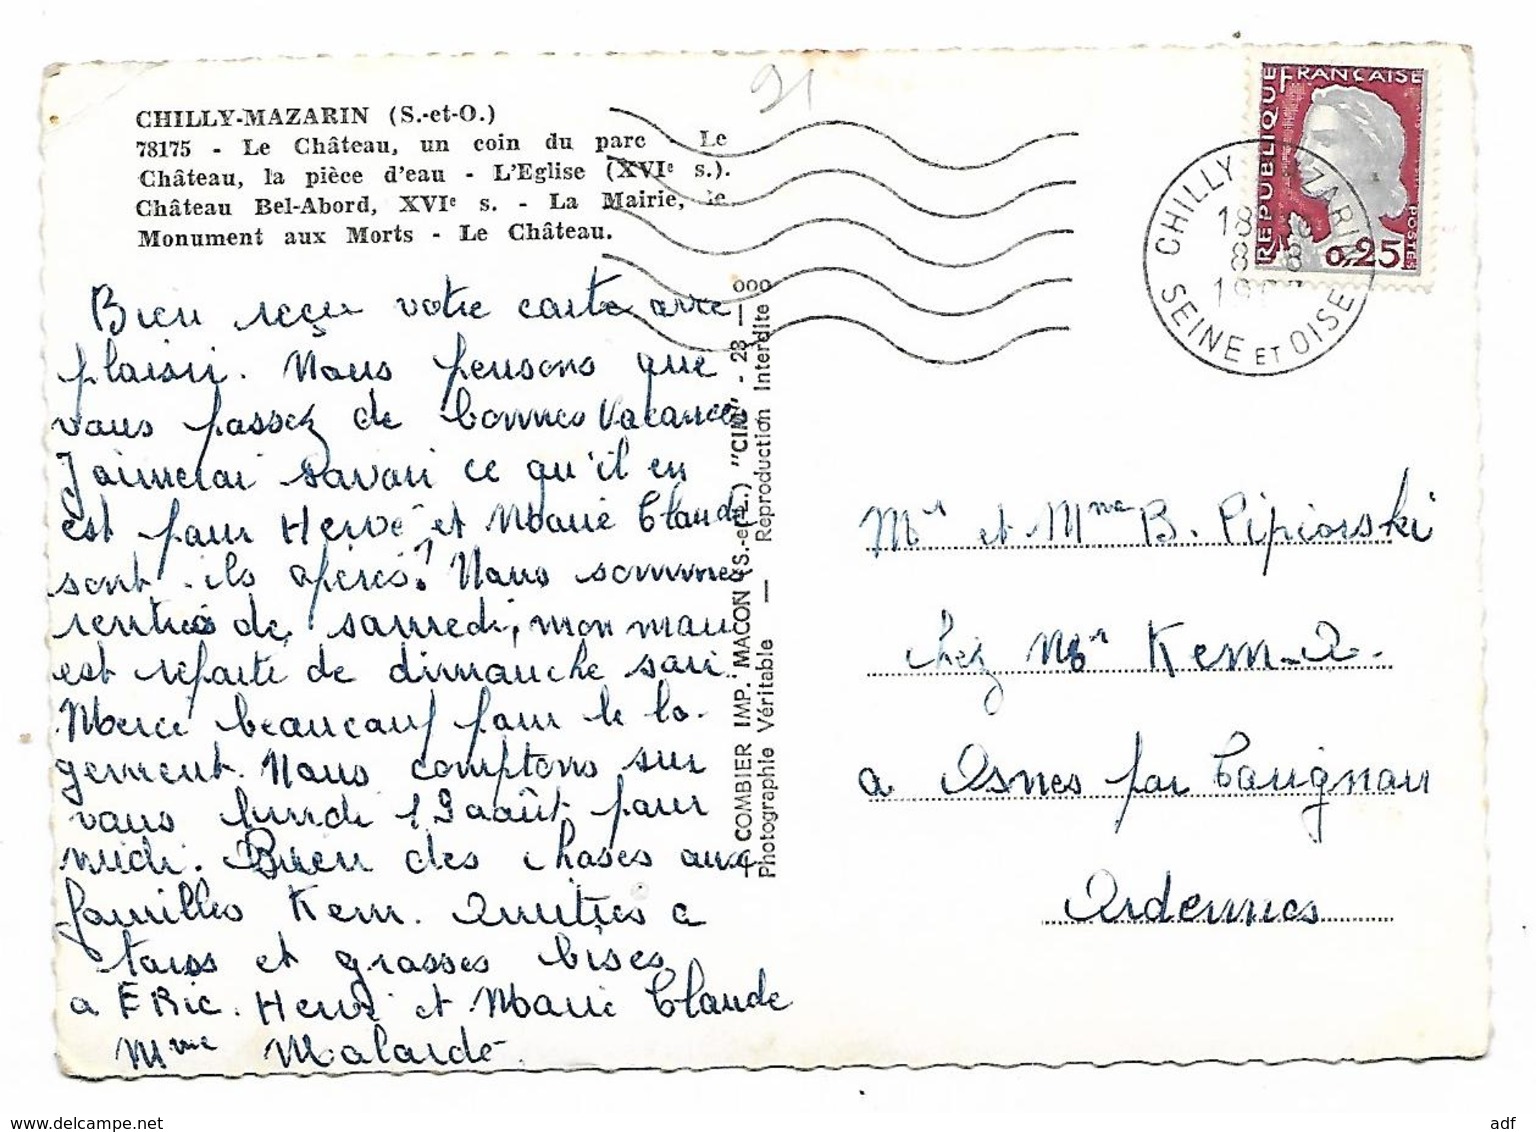 91
CHILLY-MAZARIN (S.-et-O.)
78175 - Le Château, un coin du parc - Le
Château, la pièce d'eau - L'Eglise (XVIe s.).
Château Bel-Abord, XVIe s. - La Mairie, le
Monument aux Morts - Le Château.
Bien reçu votre carte avec
plaisir. Nous pensons que
vous passez de bonnes Vacances
J'aimerai savoir ce qu'il en
est pour Hervé et Marie Claude
sont-ils opérés? Nous sommes
rentrés de samedi, mon mari
est reparti de dimanche soir
Merci beaucoup pour le lo-
gement. Nous comptons sur
vous lundi 19 août pour
midi. Bien des choses aux
familles Kem. Amitiés a
tous et grosses bises
a ERic. Hervé et Marie Claude
Mme Malarde
COMBIER IMP. MACON (S.-et-L.) "CIM" - 23 — ooo
Photographie Véritable — Reproduction Interdite
REPUBLIQUE FRANCAISE
POSTES
0,25
CHILLY MAZARIN
18
8 - 8
SEINE ET OISE
Mr et Mme B. Pipiorski
chez Mr Kem-A.
a Osnes par Carignan
Ardennes
www.delcampe.net
adf